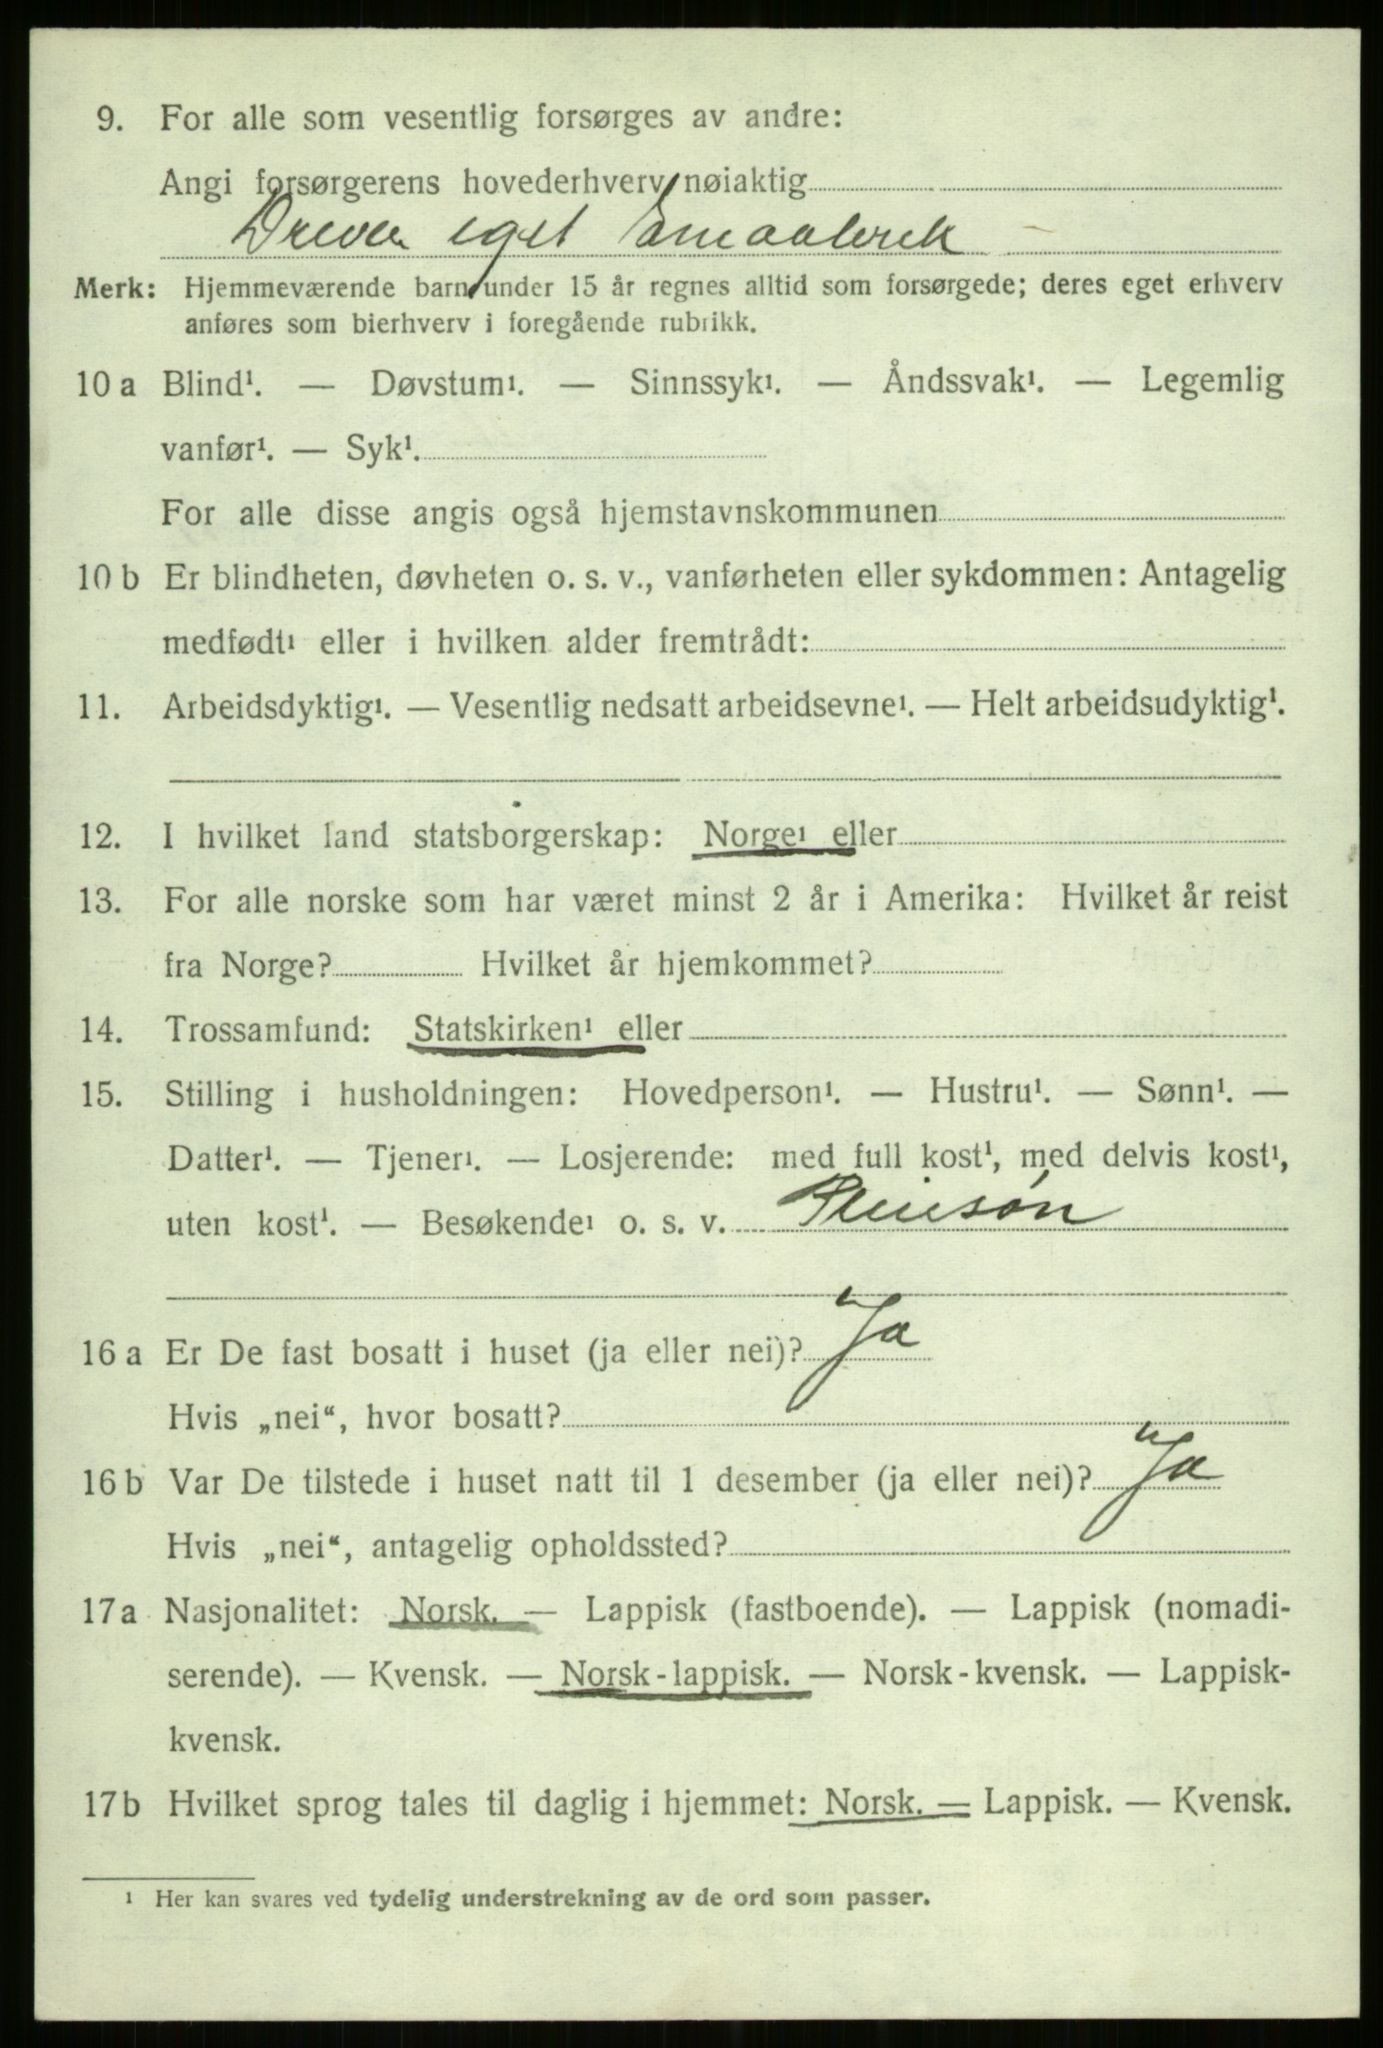 9. For alle som vesentlig forsørges av andre:
Angi forsørgerens hovederhverv nøiaktig
Driver eget Smaabruk
Merk: Hjemmeværende barn under 15 år regnes alltid som forsørgede; deres eget erhverv
anføres som bierhverv i foregående rubrikk.
10 a Blind¹. — Døvstum¹. — Sinnssyk¹. — Åndssvak¹. — Legemlig
vanfør¹. — Syk¹.
For alle disse angis også hjemstavnskommunen
10 b Er blindheten, døvheten o. s. v., vanførheten eller sykdommen: Antagelig
medfødt¹ eller i hvilken alder fremtrådt:
11. Arbeidsdyktig¹. — Vesentlig nedsatt arbeidsevne¹. — Helt arbeidsudyktig¹.
12. I hvilket land statsborgerskap: Norge¹ eller
13. For alle norske som har været minst 2 år i Amerika: Hvilket år reist
fra Norge? Hvilket år hjemkommet?
14. Trossamfund: Statskirken¹ eller
15. Stilling i husholdningen: Hovedperson¹. — Hustru¹. — Sønn¹. —
Datter¹. — Tjener¹. — Losjerende: med full kost¹, med delvis kost¹,
uten kost¹. — Besøkende¹ o. s. v. Pleiesøn
16 a Er De fast bosatt i huset (ja eller nei)? Ja
Hvis „nei“, hvor bosatt?
16 b Var De tilstede i huset natt til 1 desember (ja eller nei)? Ja
Hvis „nei“, antagelig opholdssted?
17 a Nasjonalitet: Norsk. — Lappisk (fastboende). — Lappisk (nomadi-
serende). — Kvensk. — Norsk-lappisk. — Norsk-kvensk. — Lappisk-
kvensk.
17 b Hvilket sprog tales til daglig i hjemmet: Norsk. — Lappisk. — Kvensk.
¹ Her kan svares ved tydelig understrekning av de ord som passer.